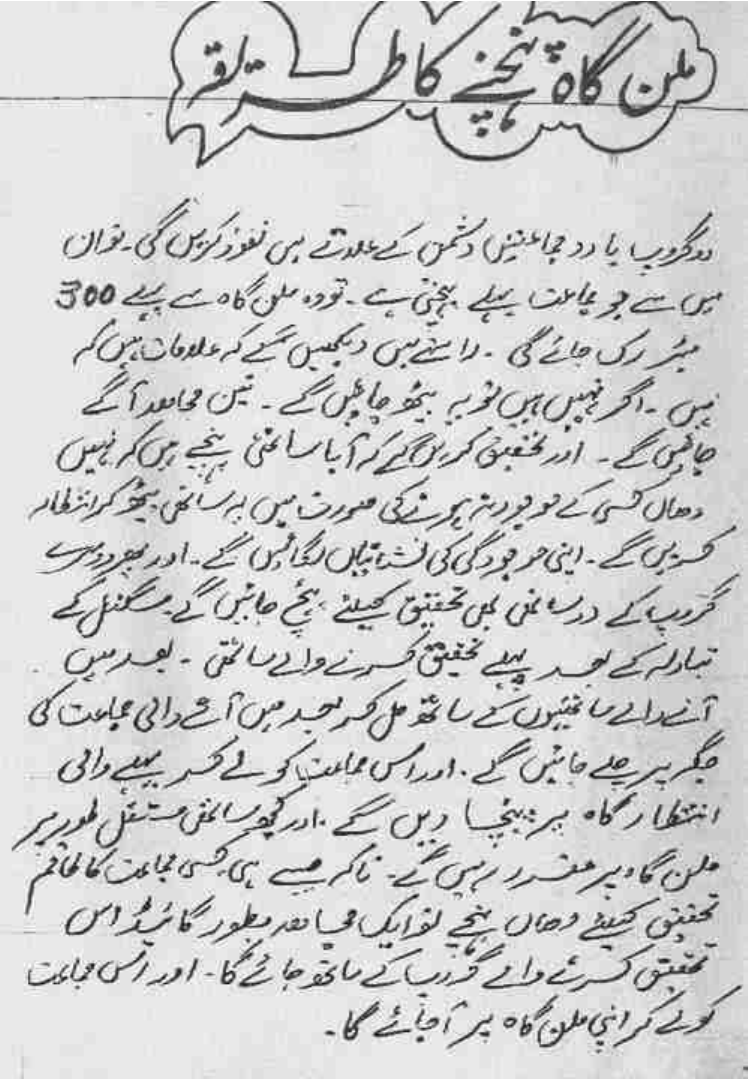 ملن گاہ پہنچنے کا طریقہ
دو گروپ یا دو جماعتیں دشمن کے علاقے میں نفوذ کریں گی۔ تو ان
میں سے جو جماعت پہلے پہنچتی ہے۔ تو وہ ملن گاہ سے پہلے 300
میٹر رک جائے گی۔ راستے میں دیکھیں گے کہ علامات ہیں کہ
نہیں۔ اگر نہیں ہیں تو یہ بیٹھ جائیں گے۔ تین مجاہد آگے
جائیں گے۔ اور تحقیق کریں گے کہ آیا ساتھی پہنچے ہیں کہ نہیں
وھاں کسی کے موجود نہ ہونے کی صورت میں یہ ساتھی بیٹھ کر انتظار
کریں گے۔ اپنی موجودگی کی نشانیاں لگائیں گے۔ اور پھر دوسرے
گروپ کے دو ساتھی بھی تحقیق کیلئے پہنچ جائیں گے سگنل کے
تبادلہ کے بعد پہلے تحقیق کرنے والے ساتھی۔ بعد میں
آنے والے ساتھیوں کے ساتھ مل کر بعد میں آنے والی جماعت کی
جگہ پر چلے جائیں گے۔ اور اس جماعت کو لے کر پہلے والی
انتظار گاہ پر پہنچا دیں گے۔ اور کچھ ساتھی مستقل طور پر
ملن گاہ پر مقرر رہیں گے۔ تاکہ جیسے ہی کسی جماعت کا
تحقیق کیلئے وھاں پہنچے تو ایک مجاہد بطور گائیڈ اس
تحقیق کرنے والے گروپ کے ساتھ جائے گا۔ اور اس جماعت
کو لے کر اپنی ملن گاہ پر آجائے گا۔